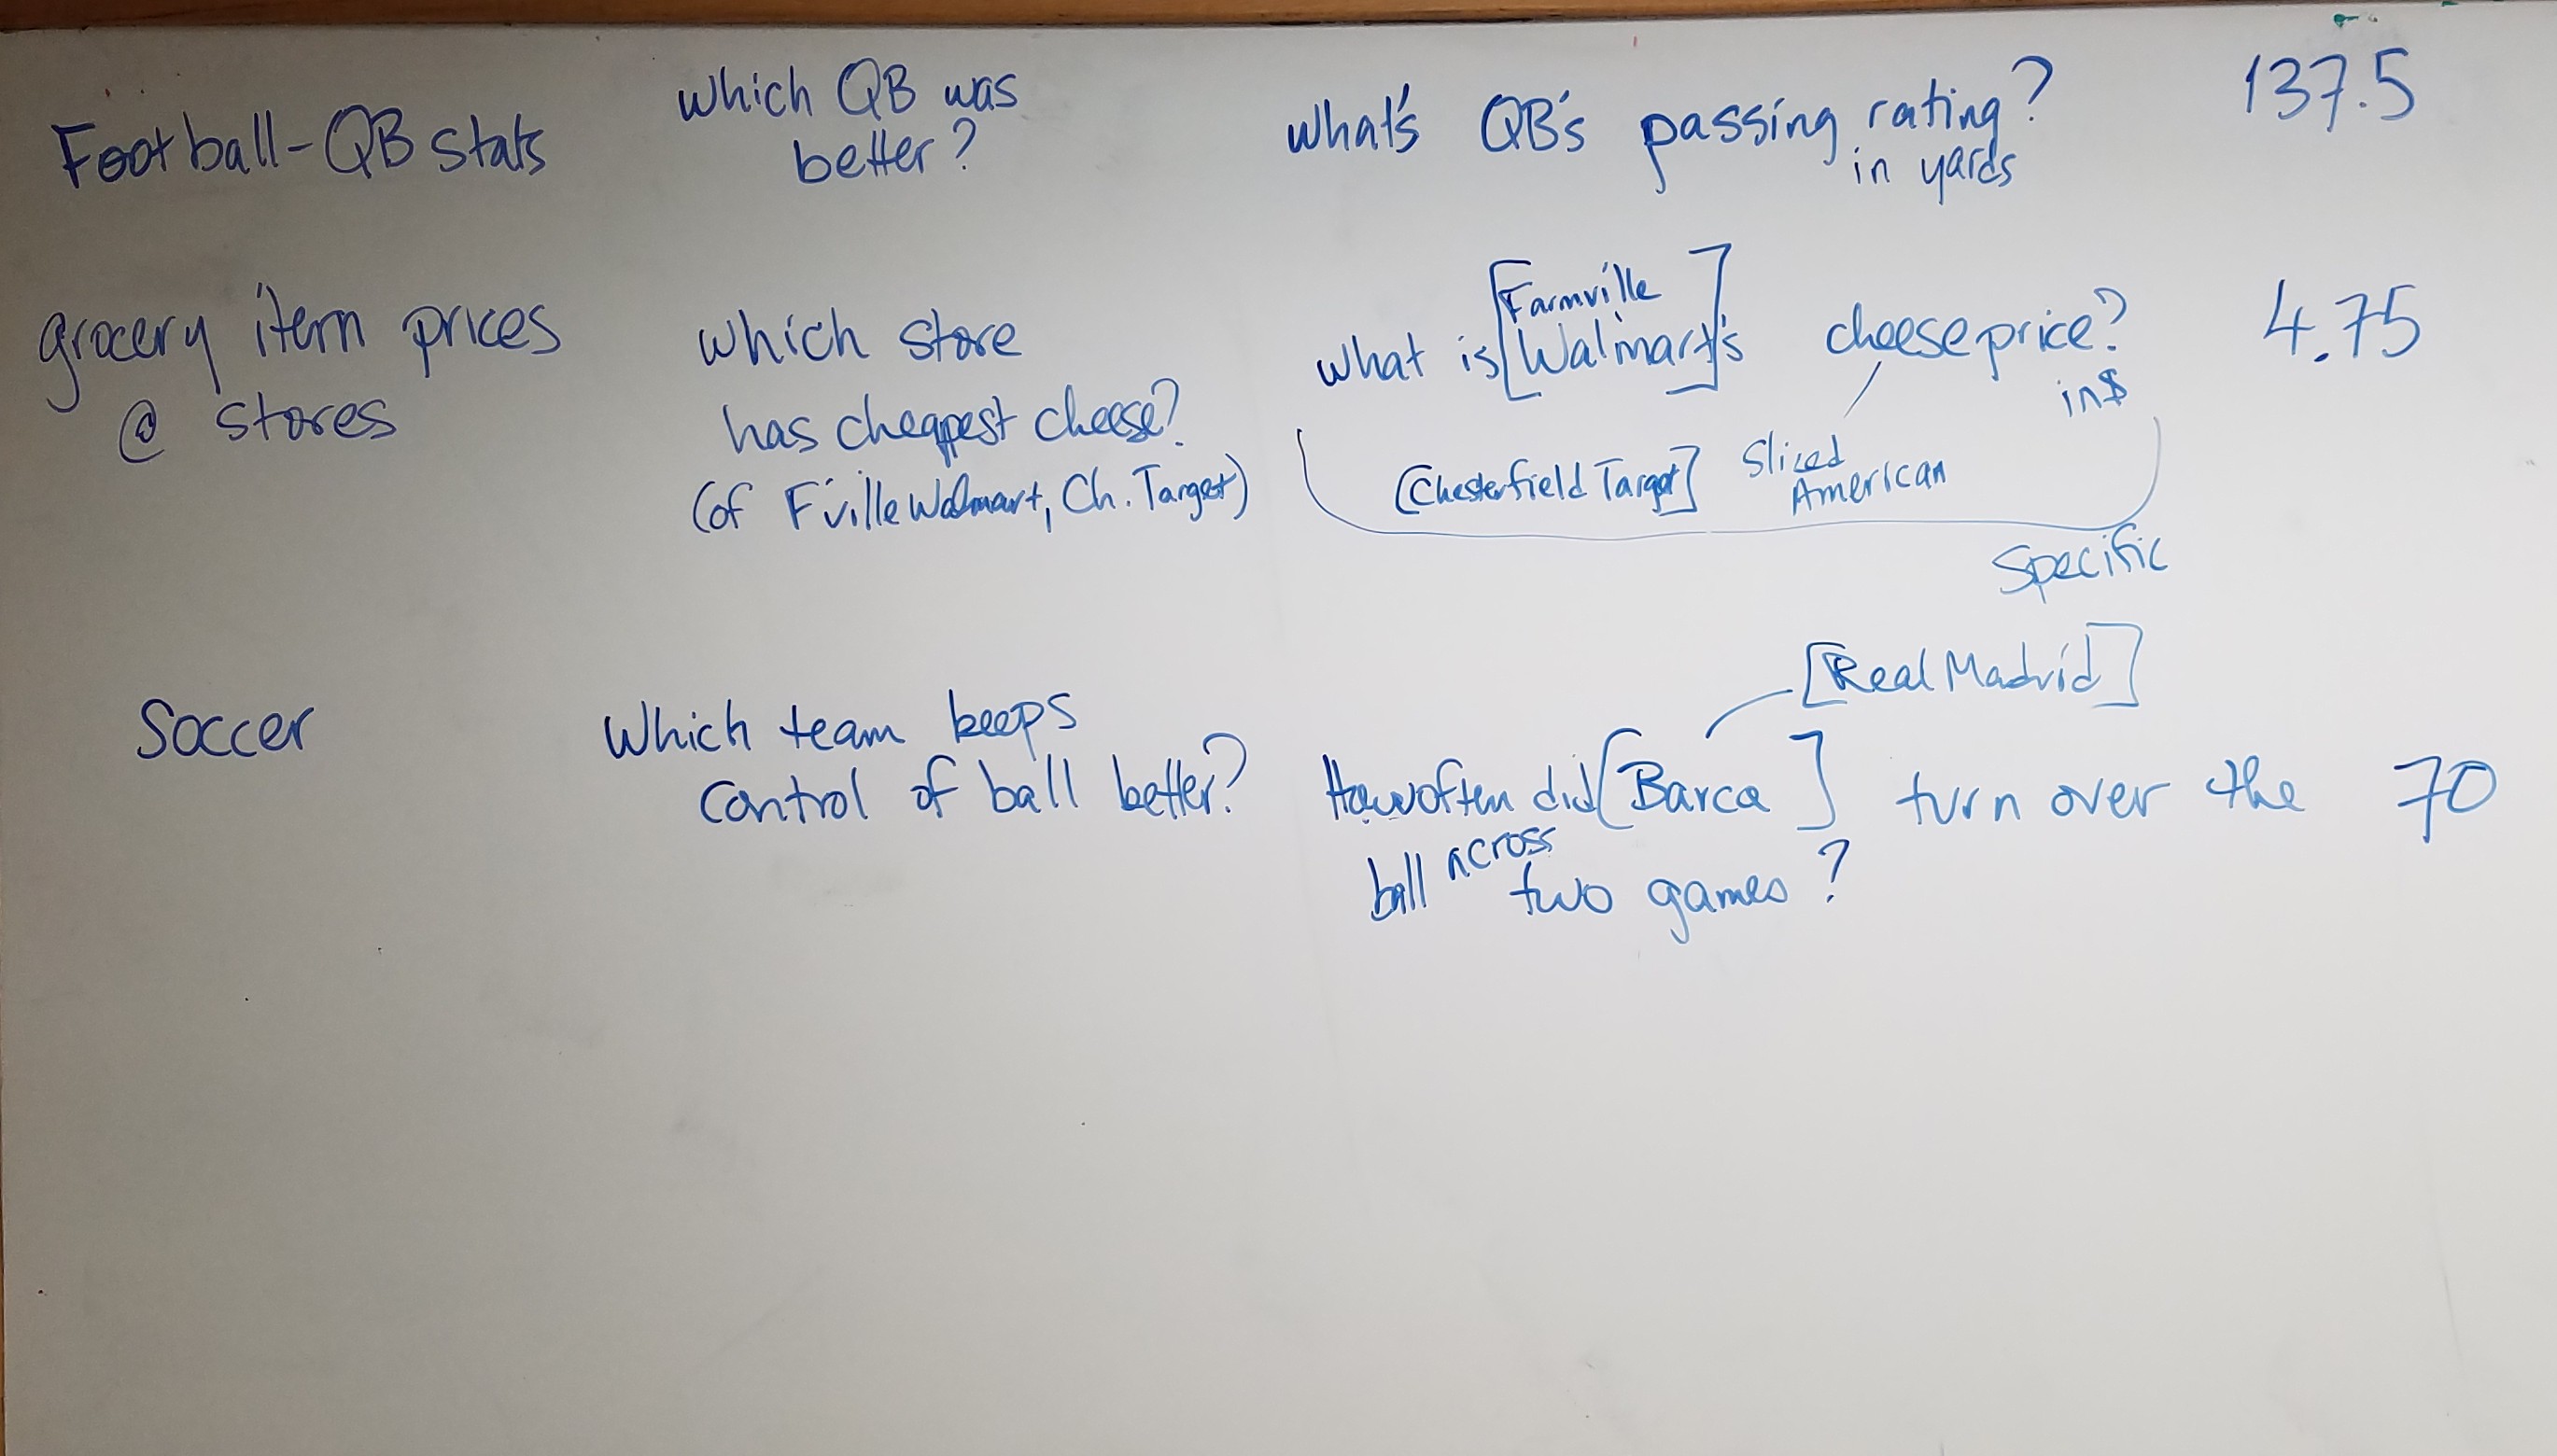 Football-QB stats
which QB was
better?
what's QB's passing rating?
in yards
137.5
grocery item prices
@ stores
which store
has cheapest cheese?
(of F'ville Walmart, Ch. Target)
[Farmville
what is [Walmart]'s cheese price?
in $
4.75
[Chesterfield Target]
Sliced
American
Specific
Soccer
Which team keeps
control of ball better?
[Real Madrid]
How often did [Barca] turn over the
ball across
two games?
70